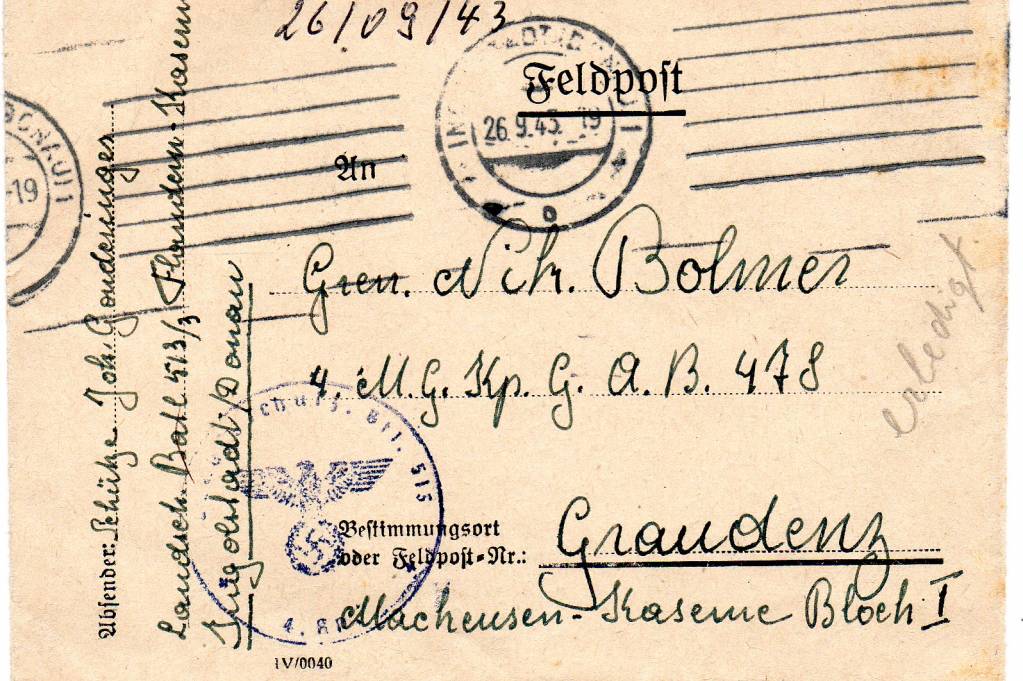 26/09/43
Feldpost
26.9.43. 19
DONAU) 1
-19
An
Gren. Nik. Bolmer
4. M. G. Kp. G. A. B. 478
erledigt
Bestimmungsort
oder Feldpost-Nr.: Graudenz
Mackensen-Kaserne Block I
Absender: Schütze Joh.
Landsch. Batl 513/3 Flandern-Kasern
Ingolstadt/Donau
schütz. Btl. 513
4.
1V/0040